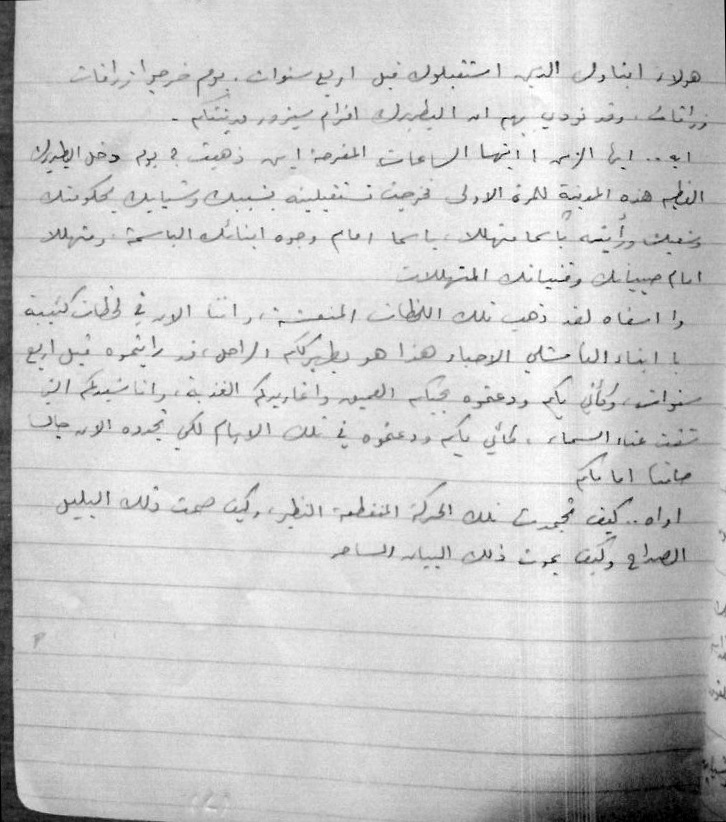 هولاء ابناؤك الذين استقبلوك قبل اربع سنوات. يوم خرجوا زرافات
زرافات، وقد نودي بهم ان البطريرك افرام سيزور مدينتكم.
ايه.. ايها الزمن اايتها الساعات المفرحة اين ذهبت؟ يوم دخل البطريرك
العظيم هذه المدينة للمرة الاولى فخرجت تستقبلينه بشيبك وشبابك بحكومتك
وشعبك ورأيته باسما متهللا، باسما امام وجوه ابنائك الباسمة، ومتهللا
امام صبيانك وفتياتك المتهللات
وا اسفاه لقد ذهبت تلك اللحظات المنعشة، واننا الان في لحظات كئيبة
يا ابناء القامشلي الاحباء هذا هو بطريرككم الراحل، قد رايتموه قبل اربع
سنوات، وكأني بكم ودعتموه بحبكم العميق واغاريدكم العذبة، واناشيدكم التي
شقت عنان السماء، كأني بكم ودعتموه في تلك الايام لكي تجدوه الان جالسا
صامتا امامكم
اواه.. كيف تجمدت تلك الحركة المنقطعة النظير، وكيف صمت ذلك البلبل
الصداح وكيف يموت ذلك البيان الساحر